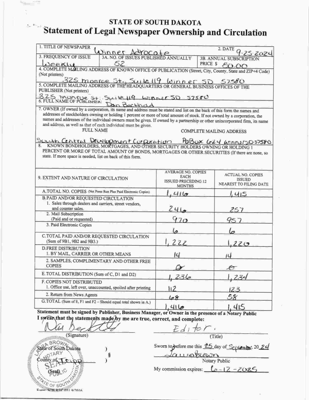 STATE OF SOUTH DAKOTA
Statement of Legal Newspaper Ownership and Circulation
1. TITLE OF NEWSPAPER Winner Advocate
2. DATE 9.25.2024
3. FREQUENCY OF ISSUE Weekly
3A. NO. OF ISSUES PUBLISHED ANNUALLY 52
3B. ANNUAL SUBSCRIPTION PRICE $ 50.00
4. COMPLETE MAILING ADDRESS OF KNOWN OFFICE OF PUBLICATION (Street, City, County, State and ZIP+4 Code) (Not printers)
325 Monroe St, Suite 119, Winner SD 57580
5. COMPLETE MAILING ADDRESS OF THE HEADQUARTERS OF GENERAL BUSINESS OFFICES OF THE PUBLISHER (Not printers)
325 Monroe St, Suite 119, Winner SD 57580
6. FULL NAME OF PUBLISHER: Dan Bechtold
7. OWNER (If owned by a corporation, its name and address must be stated and also immediately
FULL NAME
COMPLETE MAILING ADDRESS
South Central Development Corporation PO Box 624 Winner SD 57580
8. KNOWN BONDHOLDERS, MORTGAGES, AND OTHER SECURITY HOLDERS OWNING OR HOLDING 1 PERCENT OR MORE OF TOTAL AMOUNT OF BONDS, MORTGAGES OR OTHER SECURITIES (If there are none, so state. If more space is needed, list on back of this form.
9. EXTENT AND NATURE OF CIRCULATION
AVERAGE NO. COPIES EACH ISSUED PRECEDING 12 MONTHS
ACTUAL NO. COPIES ISSUED NEAREST TO FILING DATE
A. TOTAL NO. COPIES (Net Press Run Plus Paid Electronic Copies) 1,416 1,415
B. PAID AND/OR REQUESTED CIRCULATION
1. Sales through dealers and carriers, street vendors, and counter sales. 246 257
2. Mail Subscription (Paid and or requested) 970 957
3. Paid Electronic Copies 6 6
C. TOTAL PAID AND/OR REQUESTED CIRCULATION (Sum of 9B1, 9B2 and 9B3.) 1,222 1,220
D. FREE DISTRIBUTION
1. BY MAIL, CARRIER OR OTHER MEANS 14 14
2. SAMPLES, COMPLIMENTARY AND OTHER FREE COPIES 0 0
E. TOTAL DISTRIBUTION (Sum of C, D1 and D2) 1,236 1,234
F. COPIES NOT DISTRIBUTED
1. Office use, left over, unaccounted, spoiled after printing 112 123
2. Return from News Agents 68 58
G. TOTAL (Sum of E, F1 and F2 - Should equal total shown in A.) 1,416 1,415
Statement must be signed by Publisher, Business Manager, or Owner in the presence of a Notary Public
I swear that the statements made by me are true, correct, and complete:
Editor
(Signature)
(Title)
State of South Dakota
County of
Sworn to before me this 25 day of September 20 24
Notary Public
My commission expires: 6-12-2025